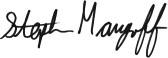 Stephen Mangoff